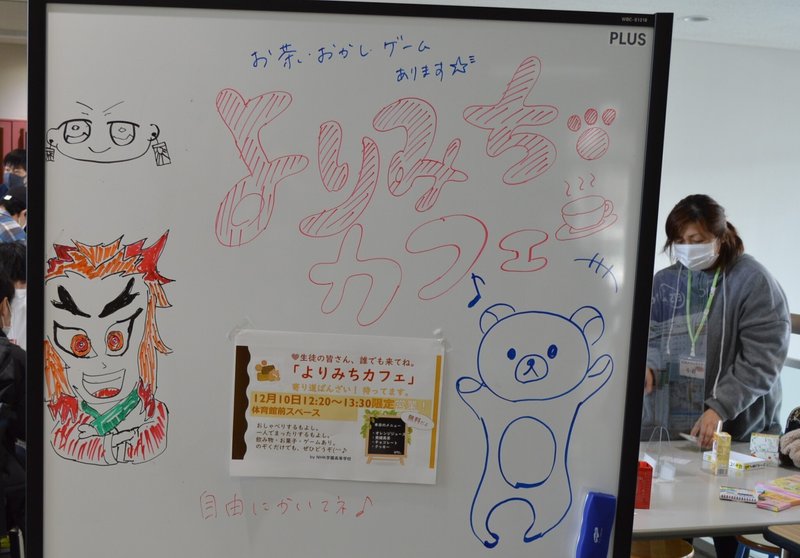 WBC-S1018
PLUS
お茶・おかし・ゲーム
あります☆
よりみち
カフェ
♥生徒の皆さん、誰でも来てね。
「よりみちカフェ」
寄り道ばんざい！ 待ってます。
12月10日12:20〜13:30限定
体育館前スペース
無料だよ
おしゃべりするもよし。
一人でまったりするもよし。
飲み物・お菓子・ゲームあり。
のぞくだけでも、ぜひどうぞ(^-^)♪
by NHK学園高等学校
本日のメニュー
・オレンジジュース
・チョコレート
・クッキー
etc.
自由にかいてネ♪